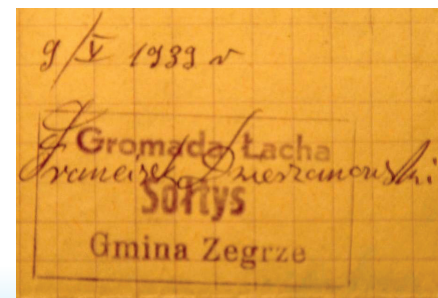 9/V 1939 r
Gromada Łacha
Franciszek Dzierzanowski
Sołtys
Gmina Zegrze